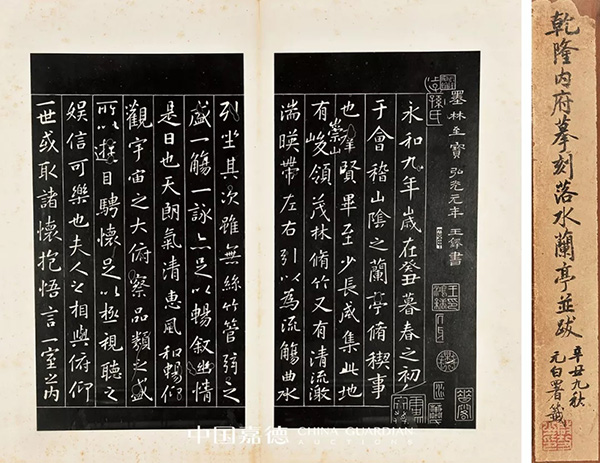 乾隆内府摹刻落水蘭亭並跋
辛丑九秋
元白署籤
墨林至寶 弘光元年 王鐸書
永和九年歲在癸丑暮春之初
于會稽山陰之蘭亭脩稧事
也羣賢畢至少長咸集此地
有崇山峻領茂林脩竹又有清流激
湍暎帶左右引以為流觴曲水
列坐其次雖無絲竹管弦之
盛一觴一詠亦足以暢敘幽情
是日也天朗氣清惠風和暢仰
觀宇宙之大俯察品類之盛
所以遊目騁懷足以極視聽之
娛信可樂也夫人之相與俯仰
一世或取諸懷抱悟言一室之內
中国嘉德 CHINA GUARDIAN
AUCTIONS